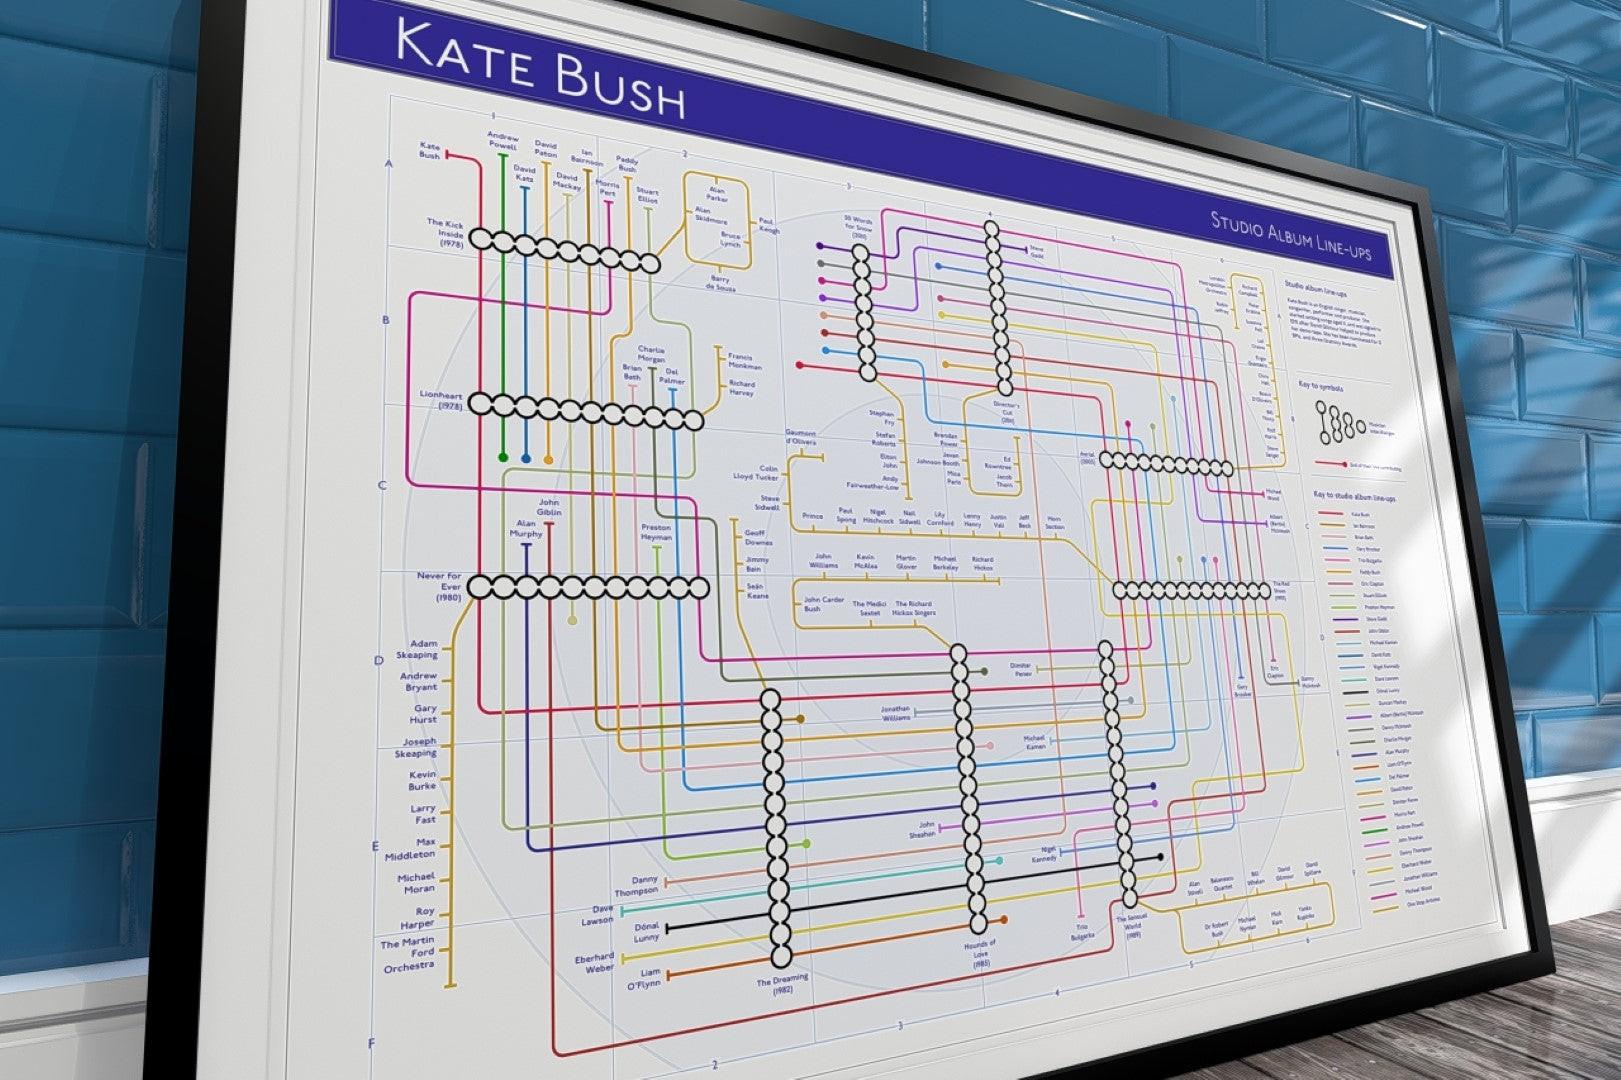 KATE BUSH
STUDIO ALBUM LINE-UPS
1
2
3
4
5
6
A
B
C
D
E
F
Kate
Bush
Andrew
Powell
David
Katz
David
Paton
David
Mackay
Ian
Bairnson
Morris
Pert
Paddy
Bush
Stuart
Elliot
Alan
Parker
Alan
Skidmore
Bruce
Lynch
Paul
Keogh
Barry
de Souza
The Kick
Inside
(1978)
Lionheart
(1978)
Charlie
Morgan
Brian
Bath
Del
Palmer
Francis
Monkman
Richard
Harvey
John
Giblin
Alan
Murphy
Preston
Heyman
Geoff
Downes
Jimmy
Bain
Seán
Keane
Never for
Ever
(1980)
Adam
Skeaping
Andrew
Bryant
Gary
Hurst
Joseph
Skeaping
Kevin
Burke
Larry
Fast
Max
Middleton
Michael
Moran
Roy
Harper
The Martin
Ford
Orchestra
Danny
Thompson
Dave
Lawson
Dónal
Lunny
Eberhard
Weber
Liam
O'Flynn
The Dreaming
(1982)
50 Words
for Snow
(2011)
Steve
Gadd
Stephen
Fry
Stefan
Roberts
Elton
John
Andy
Fairweather-Low
Director's
Cut
(2011)
Brendan
Power
Jevan
Johnson Booth
Mica
Paris
Ed
Rowntree
Jacob
Thorn
Gaumont
d'Olivera
Colin
Lloyd Tucker
Steve
Sidwell
Prince
Paul
Spong
Nigel
Hitchcock
Neil
Sidwell
Lily
Cornford
Lenny
Henry
Justin
Vali
Jeff
Beck
Horn
Section
John
Williams
Kevin
McAlea
Martin
Glover
Michael
Berkeley
Richard
Hickox
John Carder
Bush
The Medici
Sextet
The Richard
Hickox Singers
Dimitar
Penev
Jonathan
Williams
Michael
Kamen
John
Sheahan
Nigel
Kennedy
Hounds of
Love
(1985)
Trio
Bulgarka
The Sensual
World
(1989)
Alan
Stivell
Balanescu
Quartet
Bill
Whelan
David
Gilmour
Davey
Spillane
Dr Robert
Bush
Michael
Nyman
Mick
Karn
Yanka
Rupkina
Aerial
(2005)
London
Metropolitan
Orchestra
Michael
Wood
The Red
Shoes
(1993)
Eric
Clapton
Gary
Brooker
Danny
McIntosh
Studio album line-ups
Key to symbols
Key to studio album line-ups
Kate Bush
Ian Bairnson
Brian Bath
Gary Brooker
Trio Bulgarka
Paddy Bush
Eric Clapton
Stuart Elliott
Preston Heyman
Steve Gadd
John Giblin
Michael Kamen
David Katz
Nigel Kennedy
Dave Lawson
Dónal Lunny
Duncan Mackay
Albert (Bertie) McIntosh
Danny McIntosh
Charlie Morgan
Alan Murphy
Liam O'Flynn
Del Palmer
David Paton
Dimitar Penev
Morris Pert
Andrew Powell
John Sheahan
Danny Thompson
Eberhard Weber
Jonathan Williams
Michael Wood